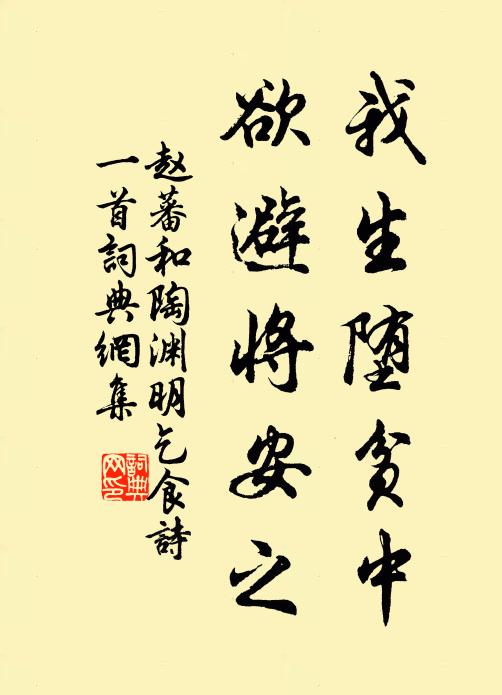 我生堕贫中
欲避将安之
赵蕃和陶渊明乞食詩
一首詞典網集
詞典
网印